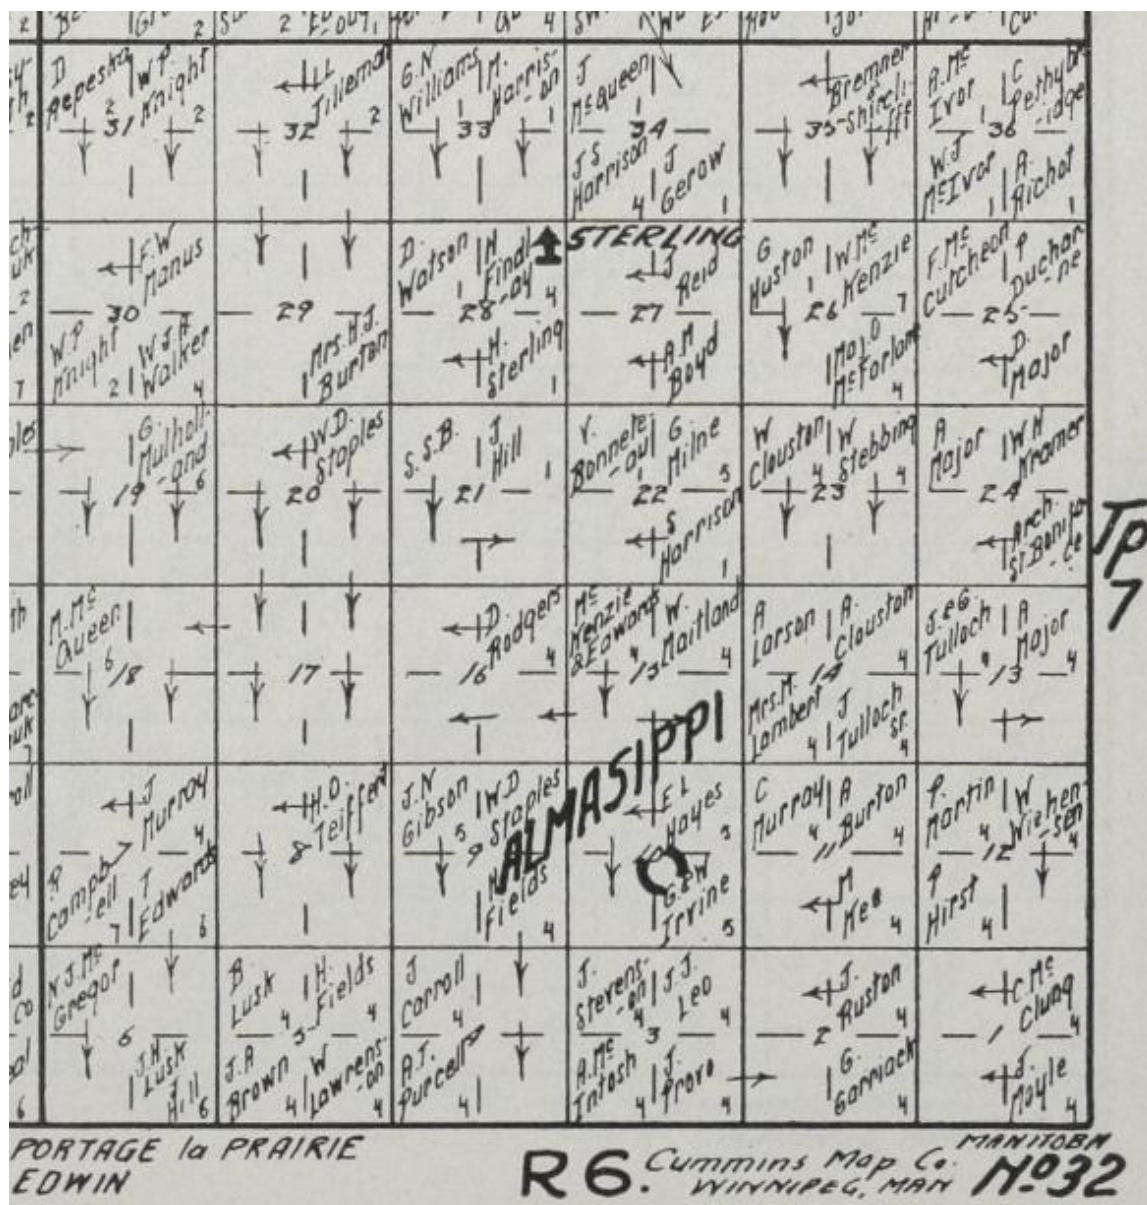 D
Repeska
2
W.P.
Knight
2
31
L
Tilleman
2
32
G.N
Williams
1
M.
Harris-
on
1
33
J
McQueen
34
J S
Harrison
4
J
Gerow
1
Bremner
&
Shircli-
ff
35
A.Mc
Ivor
1
C
Pethybr-
idge
36
W.J
McIvor
1
A.
Richot
1
F.W
Manus
30
W.P
Knight
2
W.J.A
Walker
4
29
Mrs.H.J.
Burton
D.
Watson
1
H
Findl-
ay
4
28
H.
Sterling
1
STERLING
J
Reid
27
A.M
Boyd
G
Huston
1
W.Mc
Kenzie
7
26
Maj.O
McForlane
4
F.Mc
Cutcheon
P
Duchar-
ne
25
D.
Major
G.
Mulholl-
and
6
19
W.D.
Staples
20
S.S.B.
J
Hill
1
21
V.
Bonnete-
au
G.
Milne
3
22
S
Harrison
1
W
Clouston
4
W
Stebbing
4
23
A
Major
W.H
Kramer
24
Arch.
St.Bonifa-
ce
Tp
7
M.Mc
Queen
6
18
17
D.
Rodgers
4
16
Mc
Kenzie
&Edwards
4
W.
Maitland
4
15
A
Larson
A.
Clouston
4
14
Mrs.M.
Lambert
4
J
Tulloch
Sr.
4
J.&G.
Tulloch
A
Major
4
13
J
Murray
4
R
Campb-
ell
7
T
Edwards
6
H.O.
Teiffert
8
J.N
Gibson
5
W.D
Staples
9
Fields
4
ALMASIPPI
E L
Hayes
3
G&W
Irvine
3
C
Murray
4
A
Burton
4
11
M
Kee
4
P.
Martin
4
W
Wiehen-
sen
4
12
P
Hirst
4
N.J.Mc
Gregor
6
J.H
Lusk
J
Hill
6
B.
Lusk
4
H.
Fields
4
5
J.A
Brown
4
W
Lawrens-
on
4
J
Carroll
4
4
A.J.
Purcell
4
J.
Stevens-
on
4
J.J.
Leo
4
3
A.Mc
Intosh
4
J.
Provo
4
J.
Ruston
4
2
G.
Garriack
4
C.Mc
Clung
4
1
J.
Moyle
4
PORTAGE la PRAIRIE
EDWIN
R6.
Cummins Map Co.
WINNIPEG, MAN
MANITOBA
No32